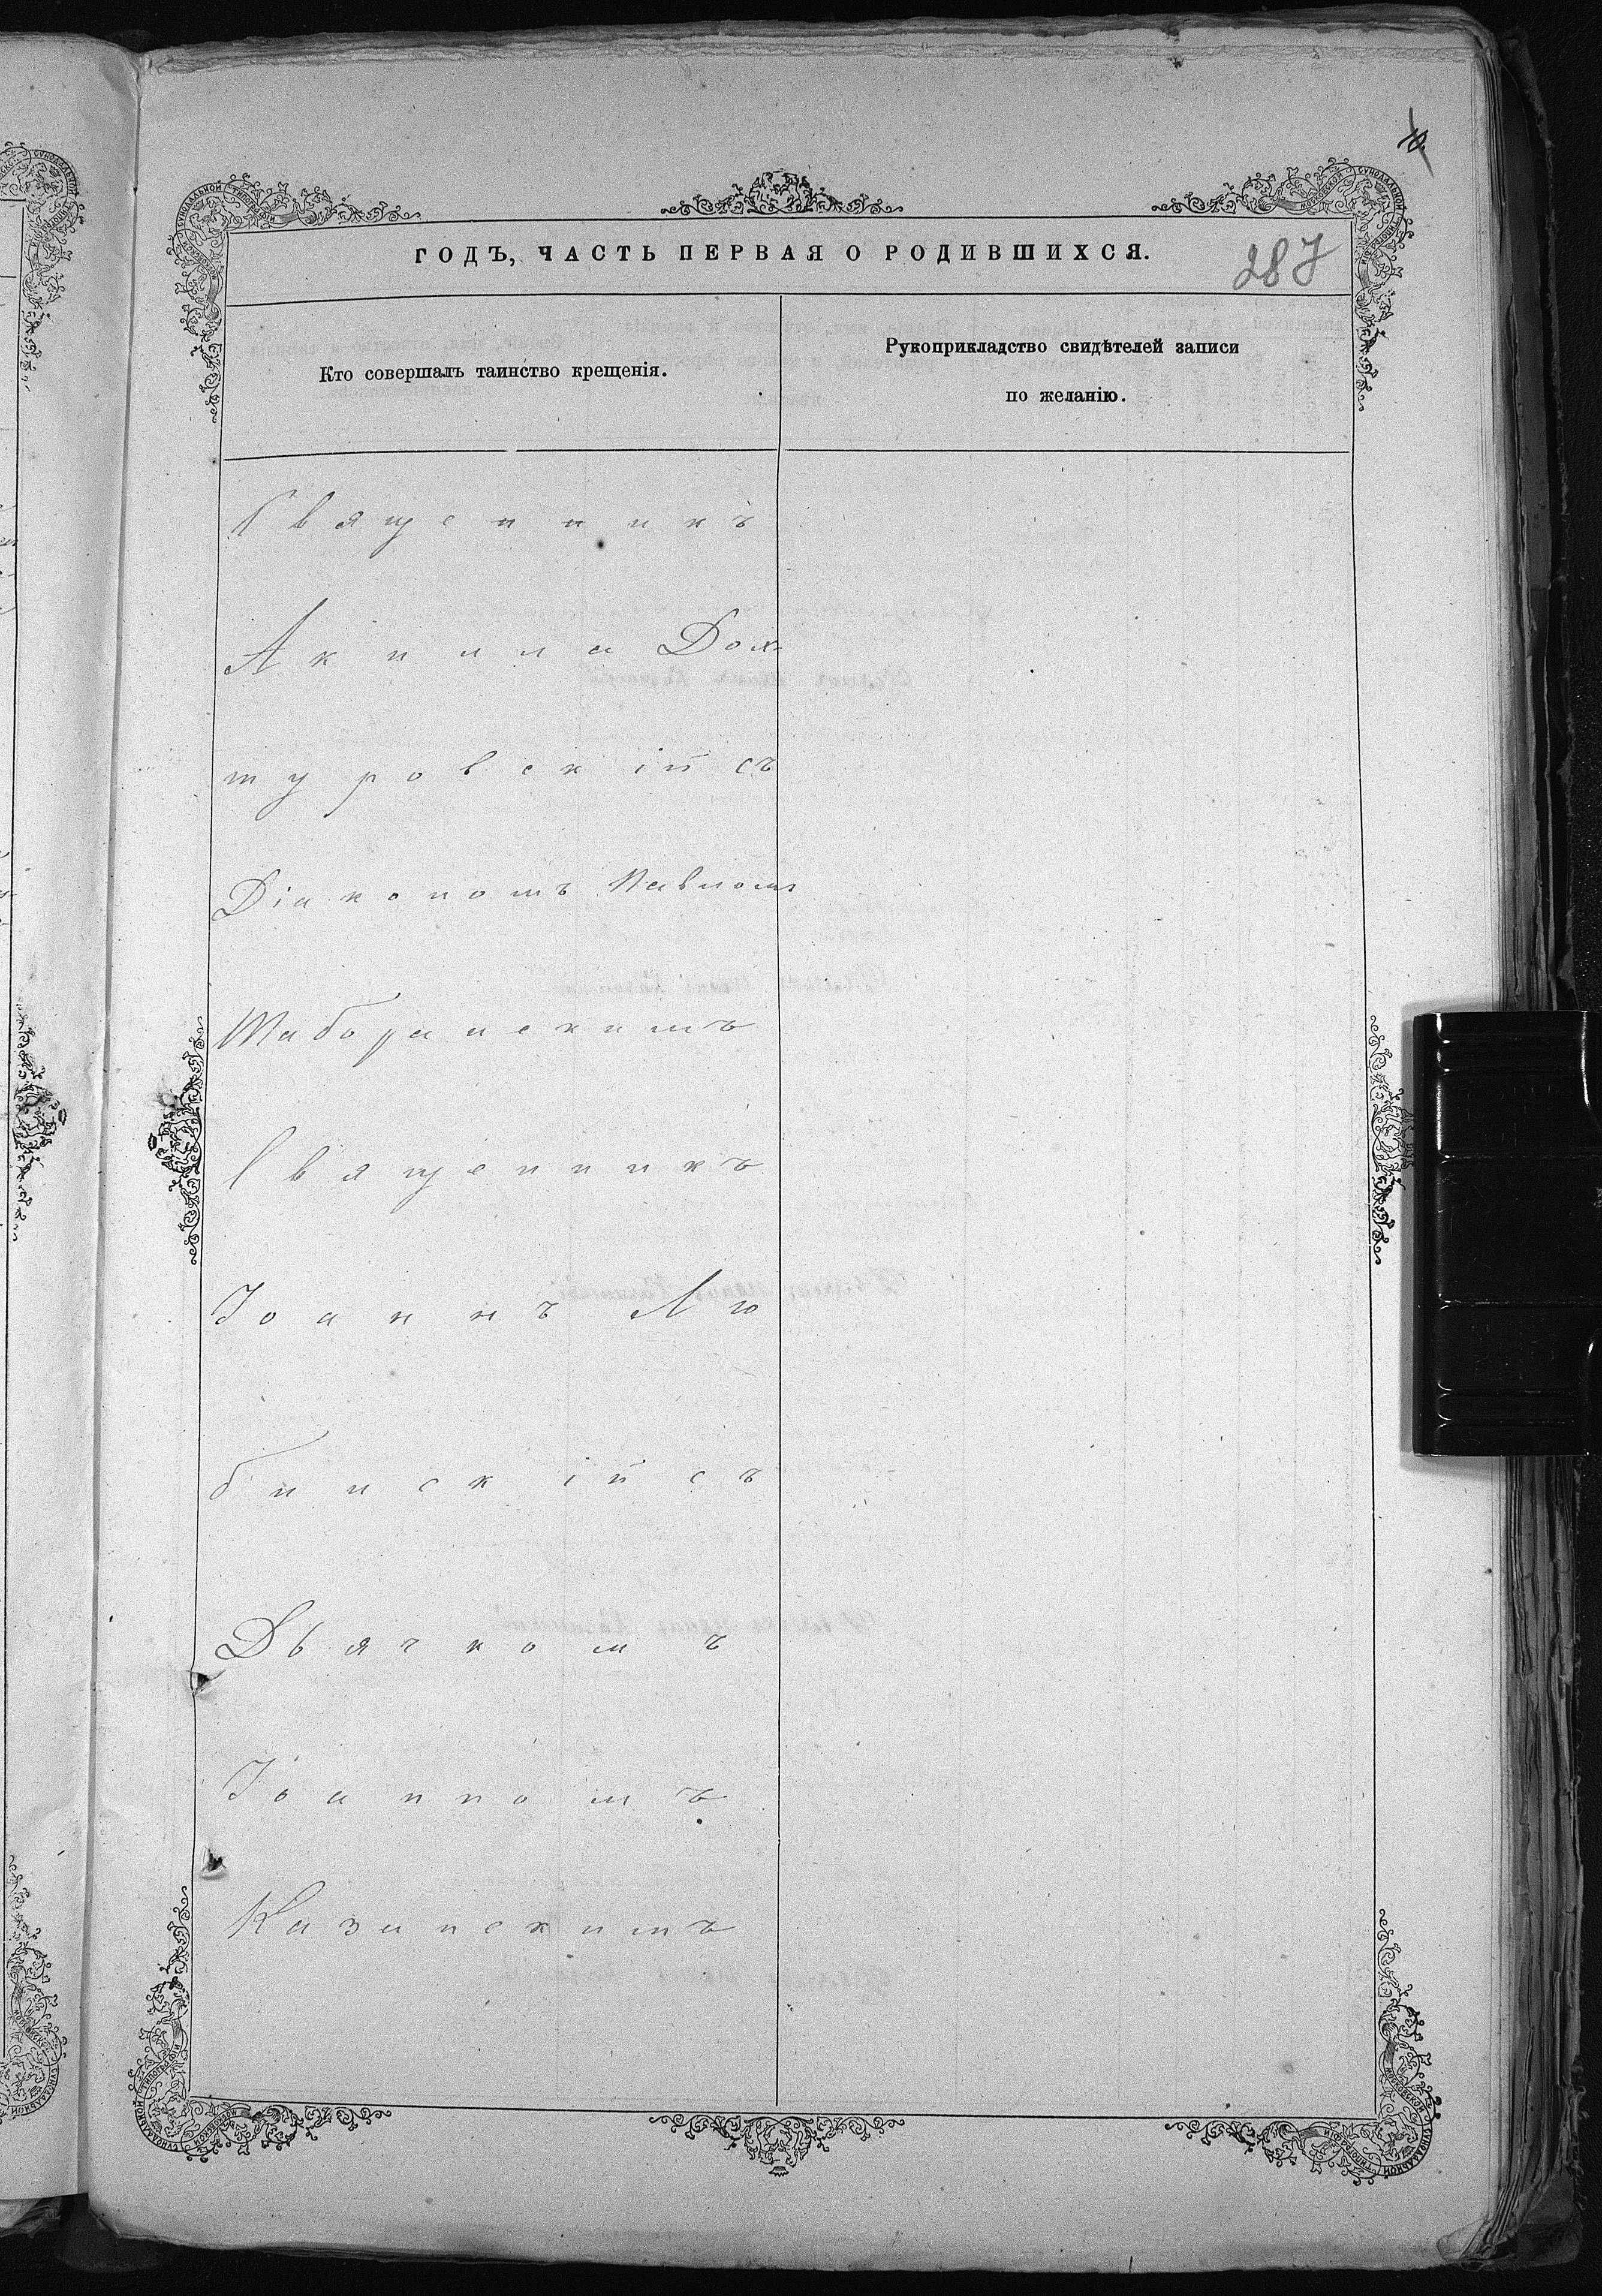 10.
ГОДЪ, ЧАСТЬ ПЕРВАЯ О РОДИВШИХСЯ.
287
Кто совершалъ таинство крещенія.
Рукоприкладство свидѣтелей записи
по желанію.
Священникъ
Акила Дох-
туровскій съ
Діакономъ Павломъ
Шаборанскимъ
Священникъ
Іоаннъ Лю
бинскій съ
Дьячкомъ
Іоанномъ
Казанскимъ